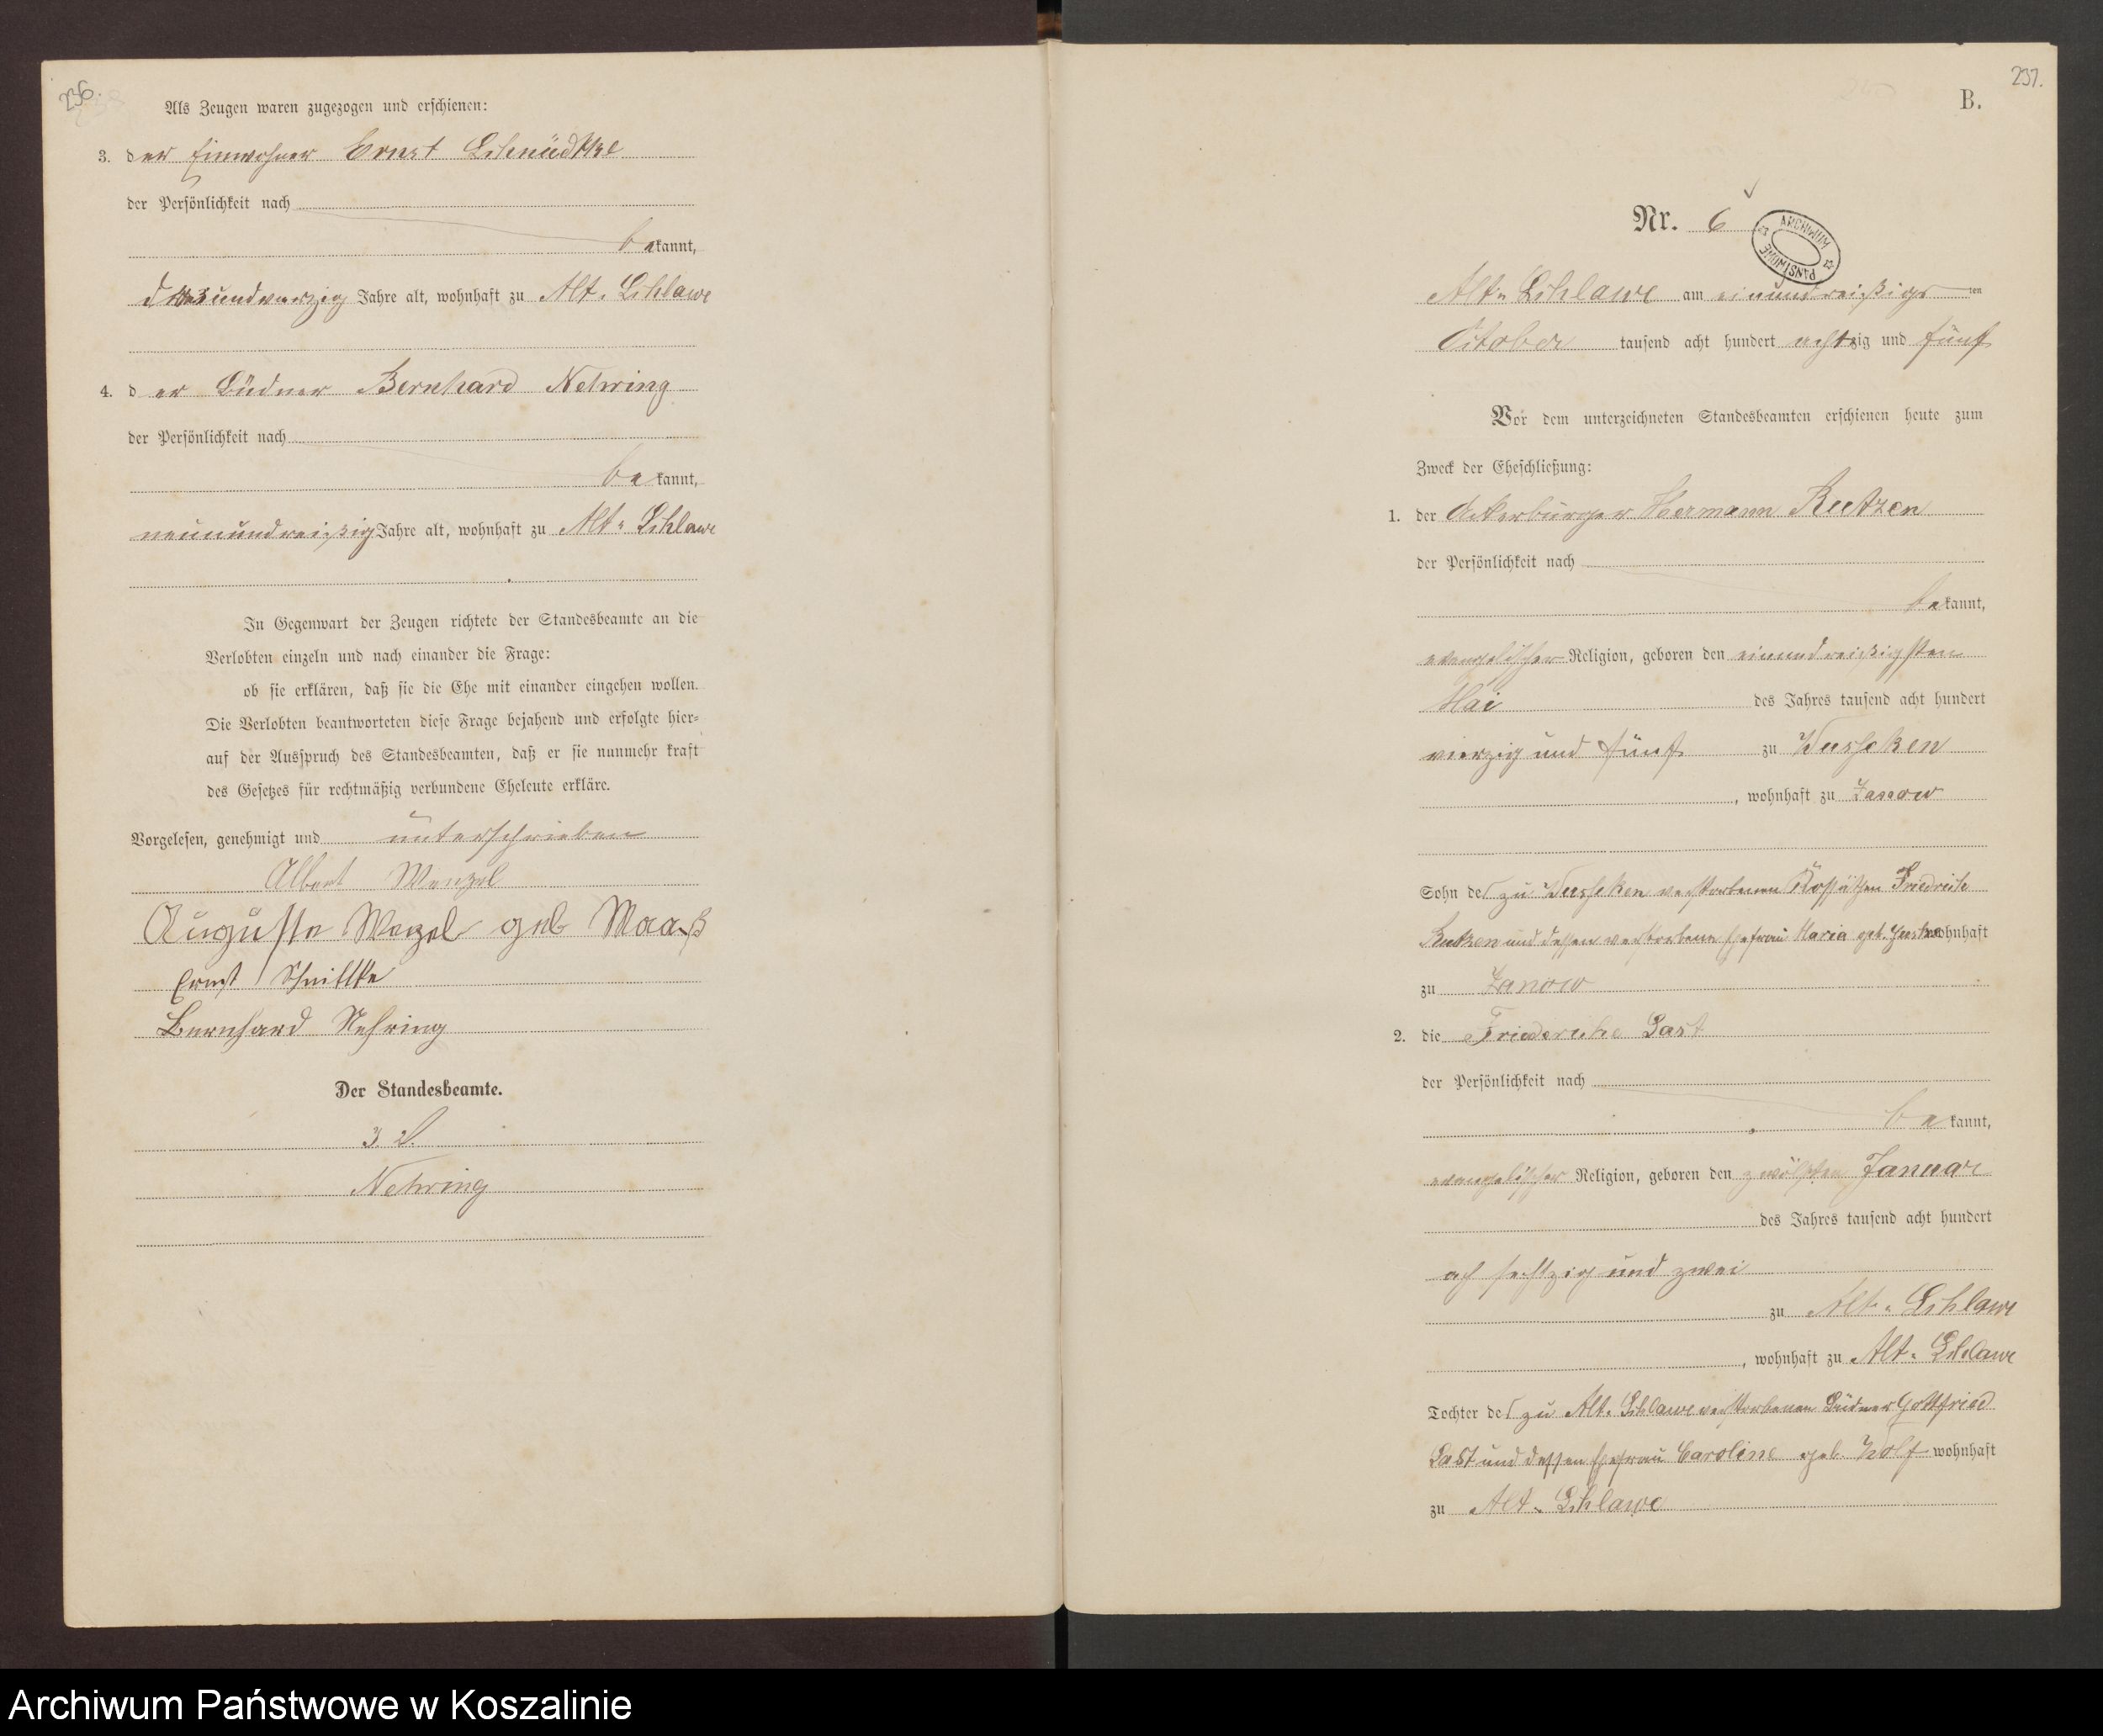 236.
Als Zeugen waren zugezogen und erschienen:
3. der Einwohner Ernst Schnüdtke
der Persönlichkeit nach
bekannt,
undvierzig Jahre alt, wohnhaft zu Alt-Schlawe
4. der Büdner Bernhard Nehring
der Persönlichkeit nach
bekannt,
neununddreißig Jahre alt, wohnhaft zu Alt-Schlawe
In Gegenwart der Zeugen richtete der Standesbeamte an die
Verlobten einzeln und nach einander die Frage:
ob sie erklären, daß sie die Ehe mit einander eingehen wollen.
Die Verlobten beantworteten diese Frage bejahend und erfolgte hier-
auf der Ausspruch des Standesbeamten, daß er sie nunmehr kraft
des Gesetzes für rechtmäßig verbundene Eheleute erkläre.
Vorgelesen, genehmigt und unterschrieben
Albert Wenzel
Auguste Wenzel geb Maaß
Ernst Schnittke
Bernhard Nehring
Der Standesbeamte.
Nehring
237.
B.
Nr. 6
ARCHIWUM PAŃSTWOWE
Alt-Schlawe am einunddreißigsten
October tausend acht hundert achtzig und fünf
Vor dem unterzeichneten Standesbeamten erschienen heute zum
Zweck der Eheschließung:
1. der Ackerbürger Hermann Rutzen
der Persönlichkeit nach
bekannt,
evangelischer Religion, geboren den einunddreißigsten
Mai des Jahres tausend acht hundert
vierzig und fünf zu Wusseken
, wohnhaft zu Zanow
Sohn des zu Wusseken verstorbenen Kossäthen Friedrich
Rutzen und dessen verstorbene Ehefrau Maria geb. wohnhaft
zu Zanow
2. die Friederike Last
der Persönlichkeit nach
bekannt,
evangelischer Religion, geboren den zwölften Januar
des Jahres tausend acht hundert
sechszig und zwei
zu Alt-Schlawe
, wohnhaft zu Alt-Schlawe
Tochter des zu Alt-Schlawe verstorbenen Büdner Gottfried
Last und dessen Ehefrau Caroline geb. Wolf wohnhaft
zu Alt-Schlawe
Archiwum Państwowe w Koszalinie